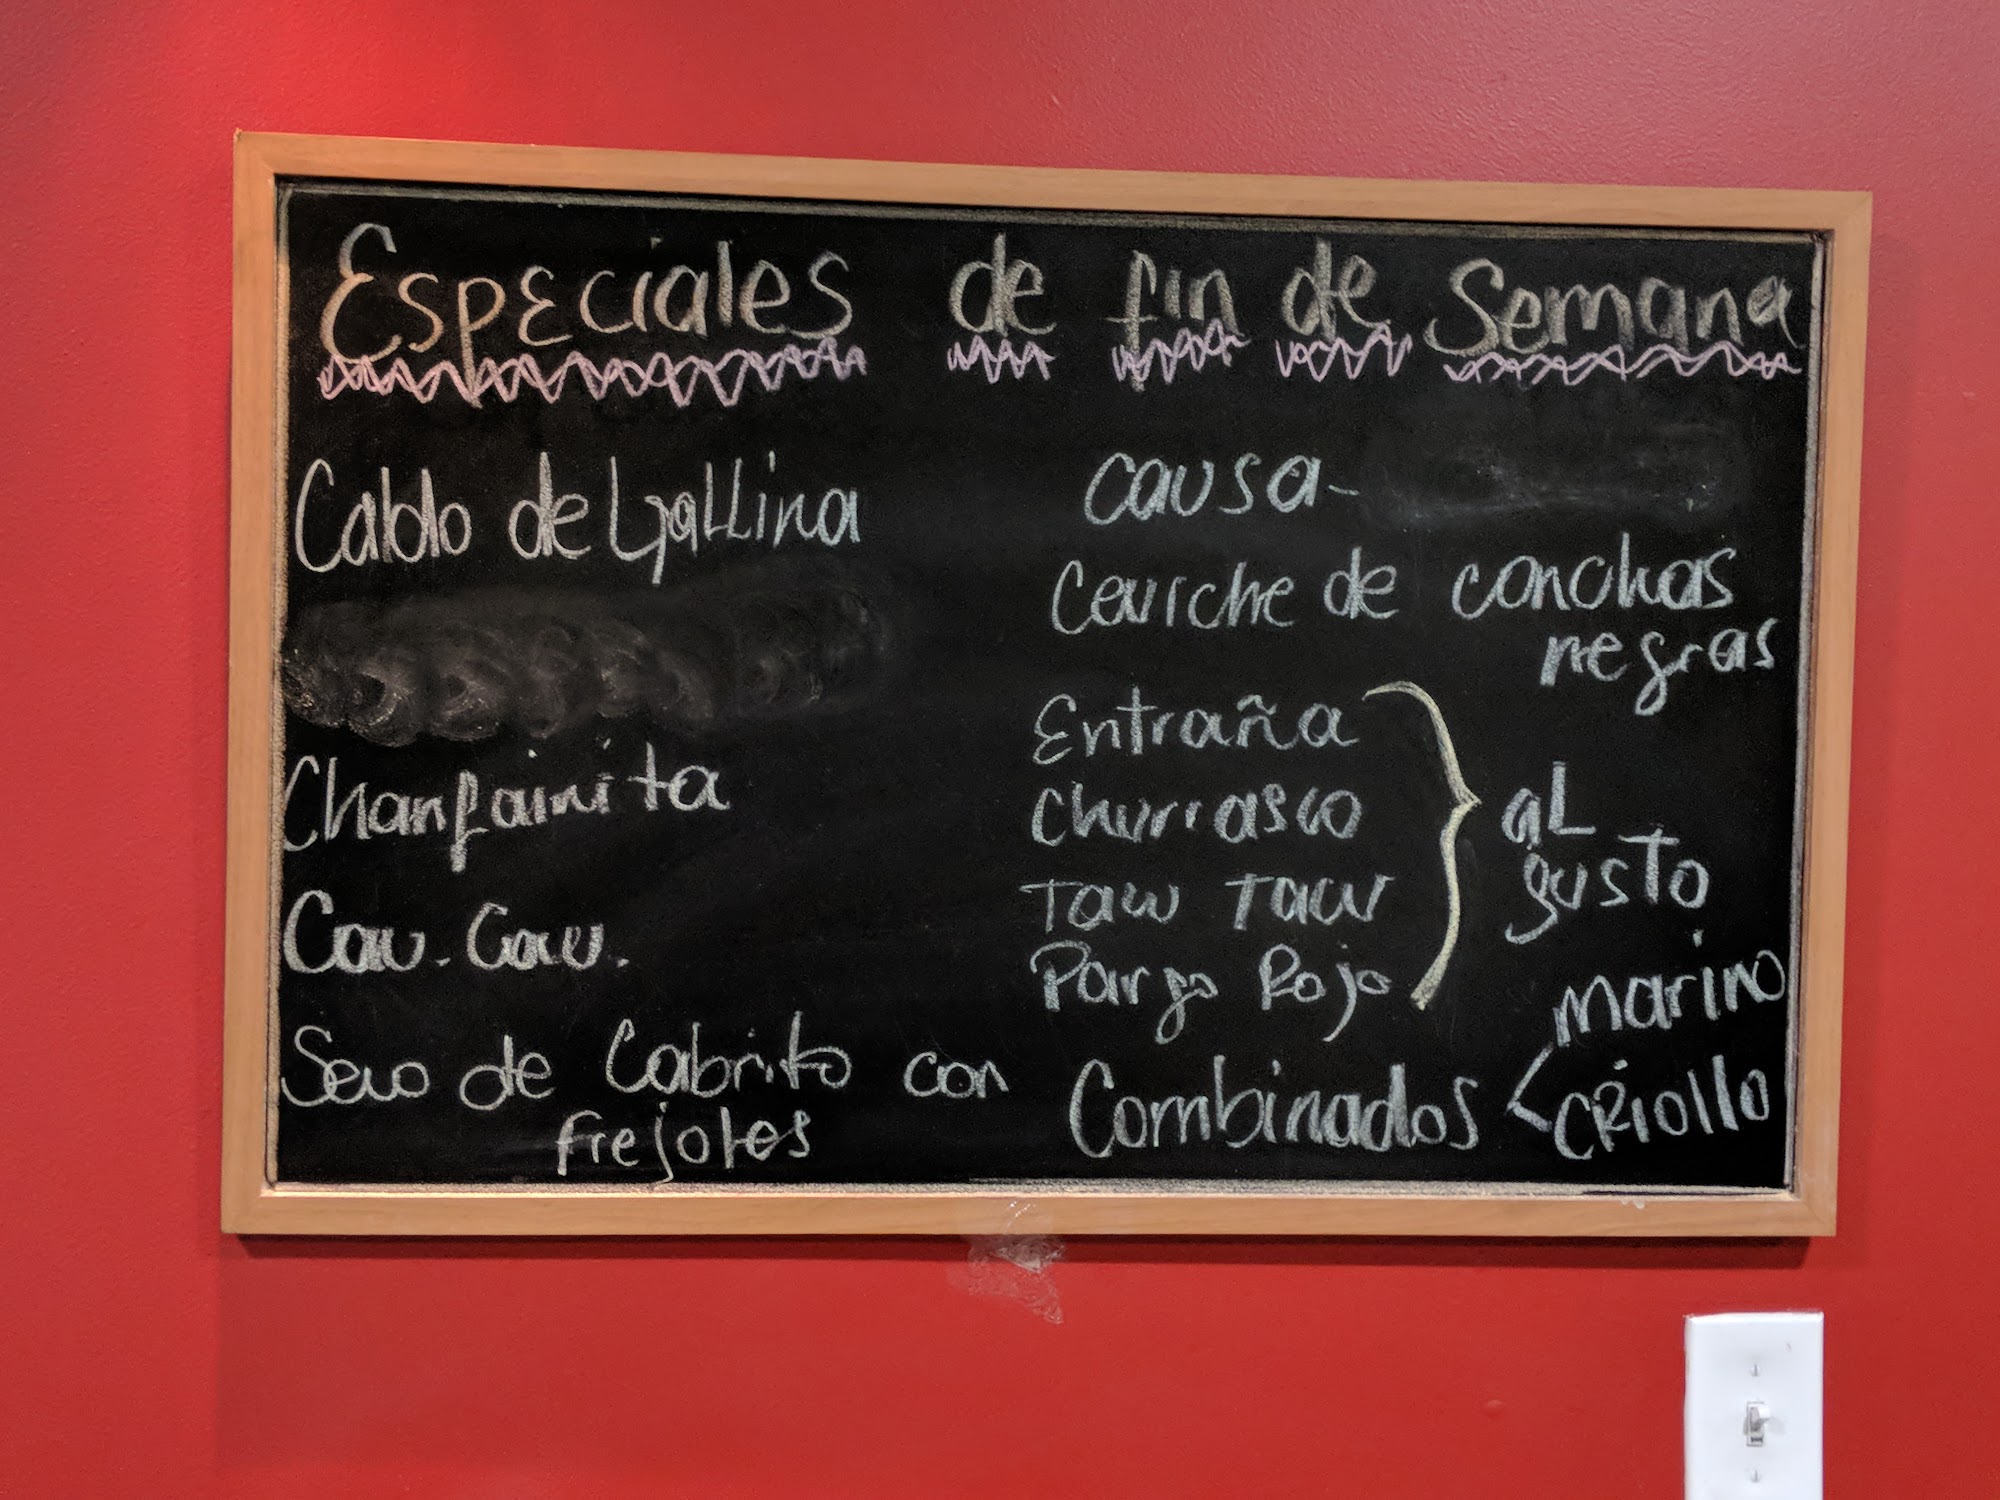 Especiales de fin de Semana
Caldo de Gallina
Chanfainita
Cau. Cau.
Seco de Cabrito con
frejoles
causa-
Ceviche de conchas
negras
Entraña
churrasco
Tacu Tacu
Pargo Rojo
al
gusto
Combinados
marino
CRiollo